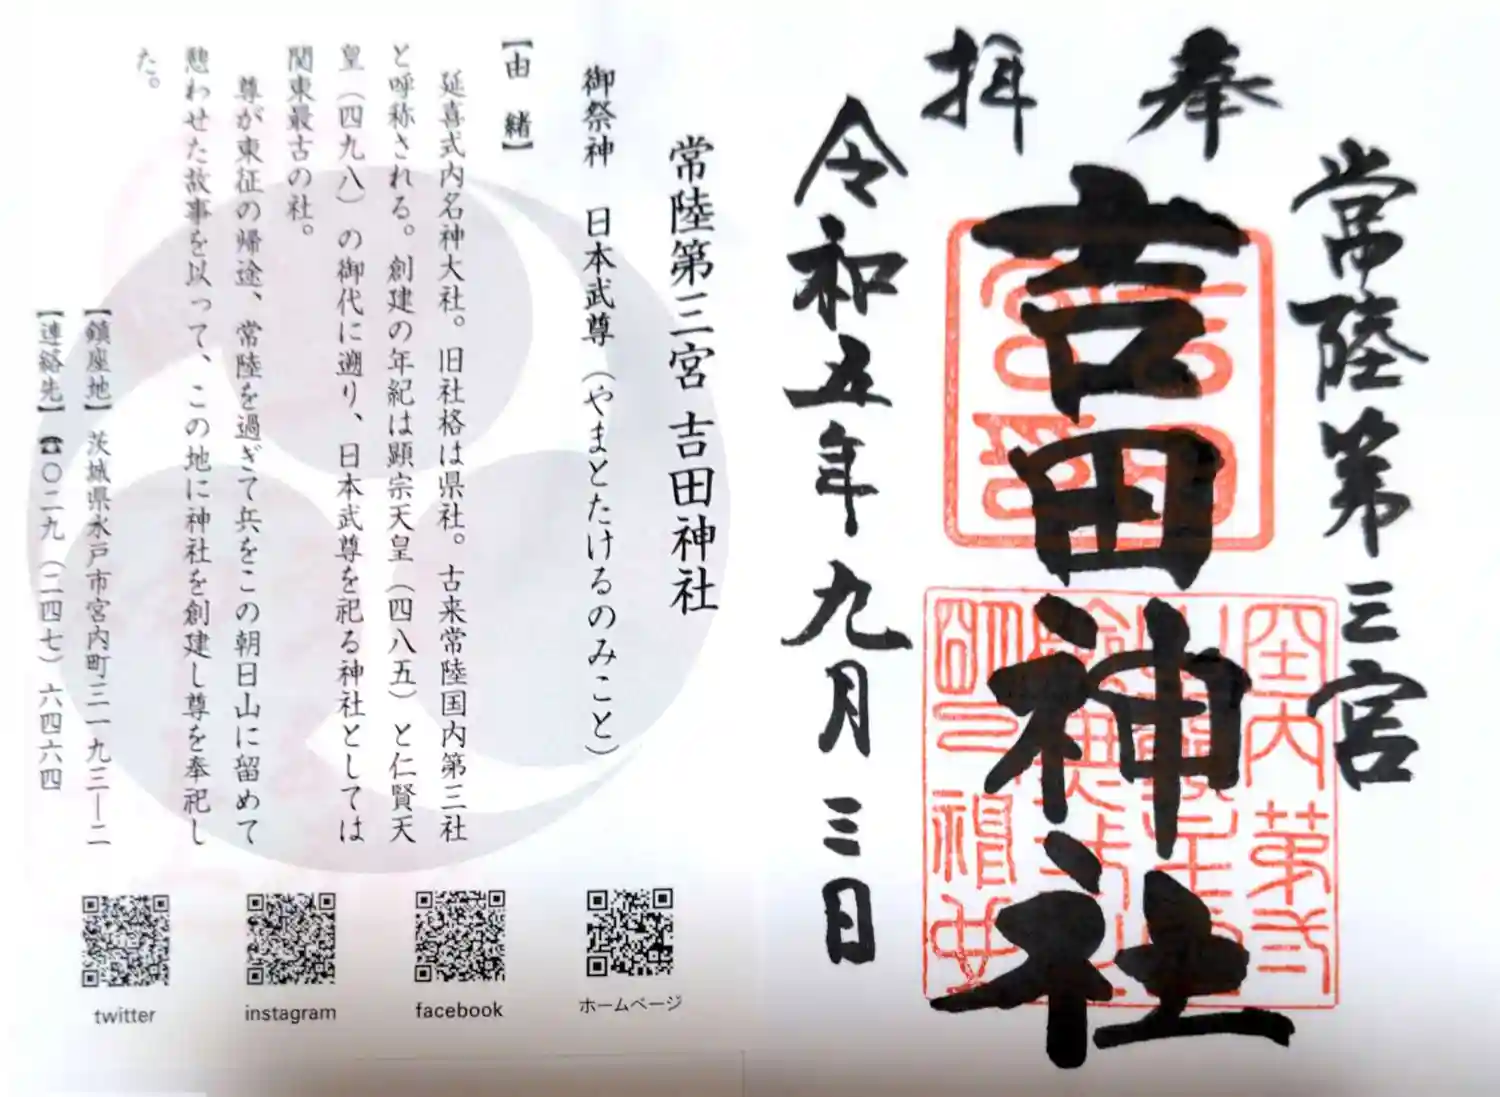 奉拝
常陸第三宮
吉田神社
令和五年九月三日
常陸第三宮 吉田神社
御祭神 日本武尊（やまとたけるのみこと）
【由 緒】
延喜式内名神大社。旧社格は県社。古来常陸国内第三社
と呼称される。創建の年紀は顕宗天皇（四八五）と仁賢天
皇（四九八）の御代に遡り、日本武尊を祀る神社としては
関東最古の社。
尊が東征の帰途、常陸を過ぎて兵をこの朝日山に留めて
憩わせた故事を以って、この地に神社を創建し尊を奉祀し
た。
【鎮座地】茨城県水戸市宮内町三一九三―二
【連絡先】☎〇二九（二四七）六四六四
ホームページ
facebook
instagram
twitter